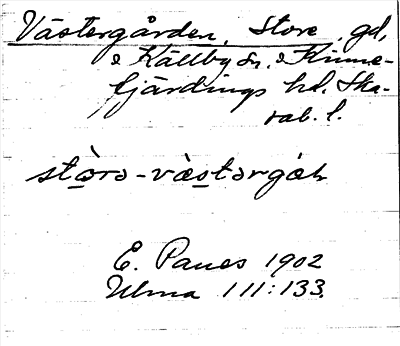 Västergården, Store, gd,
i Källby sn. i Kinne-
fjärdings hd. Ska-
rab. l.
stòrə-vàstərgɑ
E. Panes 1902
Ulma 111:133.